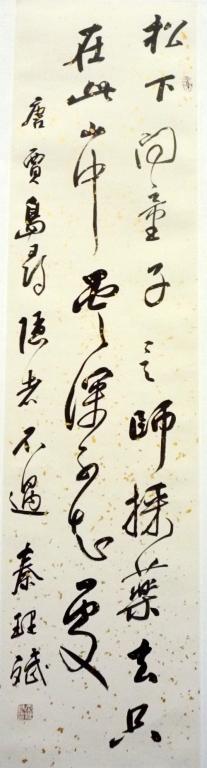 松下问童子言师採藥去只
在此山中雲深不知處
唐賈島尋隐者不遇 秦理斌